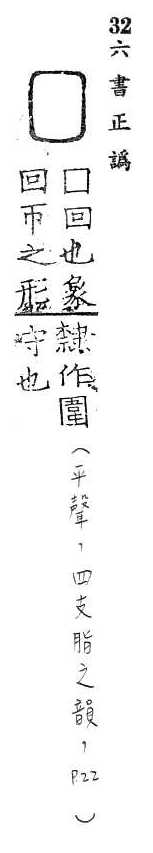 32六書正譌
囗
囗回也象
回帀之形
隸作圍
守也
（平聲，四支脂之韻，P.22）